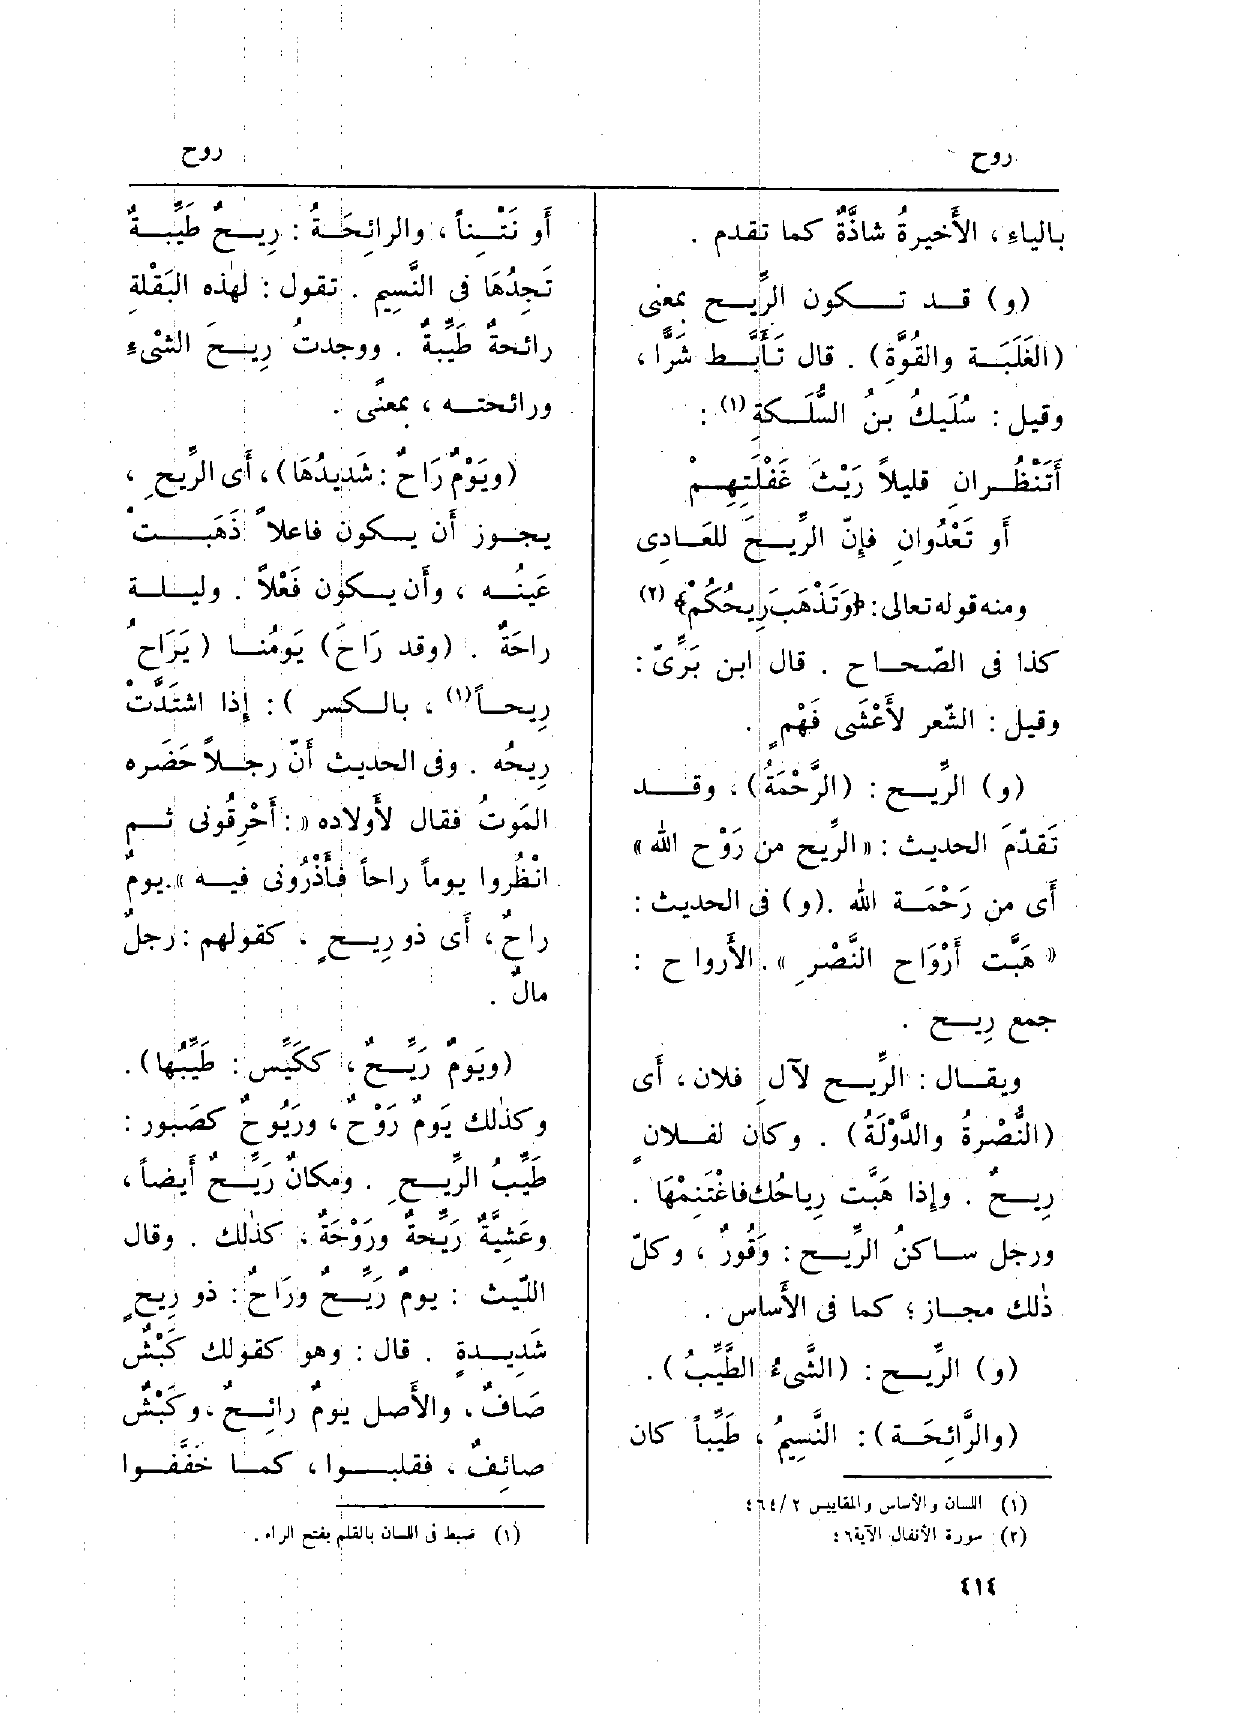 روح
روح
بالياءِ ، الأَخيرةُ شاذَّةٌ كما تقدم .
(و) قـد تـكون الرِّيـح بمعنى
(الغَلَبَـة والقُوَّة) . قال تَأَبَّـط شَرًّا ،
وقيل : سُلَيكُ بنُ السُّلَـكة (١) :
أَتَنْظُـرانِ قليلاً رَيْثَ غَفْلَتِهِـمْ
أو تَعْدُوانِ فإِنّ الرِّيـحَ للعَـادِى
ومنه قوله تعالى : ﴿وَتَذْهَبَ رِيحُكُمْ﴾ (٢)
كذا فى الصّحـاح . قال ابن بَرِّىّ :
وقيل : الشّعر لأَعْشَى فَهْمٍ .
(و) الرِّيـح : (الرَّحْمَةُ) ، وقـد
تَقدّمَ الحديث : « الرِّيح من رَوْح الله »
أى من رَحْمَـة الله . (و) فى الحديث :
« هَبَّت أَرْوَاح النَّصْرِ » . الأَرواح :
جمع رِيـح .
ويقـال : الرِّيـح لآلِ فلان ، أى
(النُّصْرةُ والدَّوْلَةُ) . وكان لفـلانٍ
رِيـحٌ . وإذا هَبَّت رِياحُك فاغْتَنِمْهَا .
ورجل سـاكنُ الرِّيـح : وَقُورٌ ، وكلّ
ذٰلك مجـاز ؛ كما فى الأَساس .
(و) الرِّيـح : (الشَّىءُ الطَّيِّبُ) .
(والرَّائحَـة) : النَّسِيمُ ، طَيِّباً كان
(١) اللسان والأساس والمقاييس ٢/٤٦٤
(٢) سورة الأنفال الآية ٤٦
٤١٤
أو نَتْـنِاً ، والرائِحَـةُ : رِيـحٌ طَيِّبـةٌ
تَجِدُهَا فى النَّسِيم . تقول : لهٰذه البَقْلَةِ
رائحةٌ طَيِّبةٌ . ووجدتُ رِيـحَ الشْىءِ
ورائحتـه ، بمعنًى .
(ويَوْمٌ رَاحٌ : شَدِيدُهَا) ، أَى الرِّيحِ ،
يجـوز أن يـكون فاعلاً ذَهَبـتْ
عَينُـه ، وأَن يـكون فَعْلاً . وليـلة
راحَةٌ . (وقد رَاحَ) يَومُنـا (يَرَاحُ
رِيحـاً (١) ، بالـكسر ) : إذا اشتَدَّتْ
رِيحُه . وفى الحديث أَنّ رجـلاً حَضَره
المَوتُ فقال لأَولاده « : أَحْرِقُونى ثـم
انْظُروا يوماً راحاً فأَذْرُونى فيـه » . يومٌ
راحٌ ، أَى ذو رِيـحٍ . كقولهم : رجلٌ
مالٌ .
(ويَومٌ رَيِّـحٌ ، ككَيِّس : طَيِّبُها) .
وكذٰلك يَومٌ رَوْحٌ ، ورَيُوحٌ كصَبور :
طَيِّبُ الرِّيـحِ . ومكانٌ رَيِّـحٌ أَيضاً ،
وعَشِيَّةٌ رَيِّحةٌ ورَوْحَةٌ ، كذٰلك . وقال
اللّيث : يومٌ رَيِّـحٌ ورَاحٌ : ذو رِيحٍ
شَدِيـدةٍ . قال : وهو كقولك كَبْشٌ
صَافٌ ، والأَصل يومٌ رائِـحٌ ، وكَبْشٌ
صائفٌ ، فقلبـوا ، كمـا خَفَّفـوا
(١) ضبط فى اللسان بالقلم بفتح الراء .